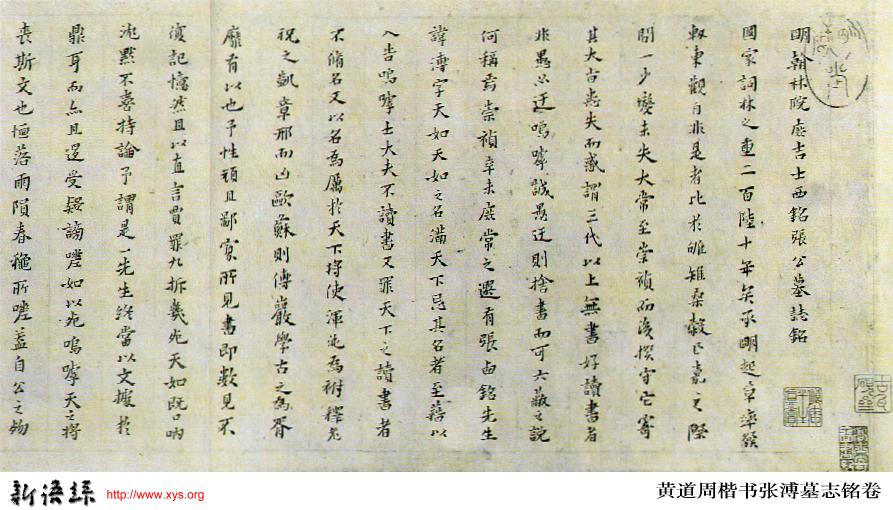 明翰林院庶吉士西銘張公墓誌銘
國家詞林之重二百陸十年矣承明起草率發
東觀自非是者比於雌雉桑穀已嘉之際
間一少變未失大常至崇禎而後撰守它寄
其大古喪失而感謂三代以上無書好讀書者
非愚㠯迂嗚嘑誠愚迂則捨書而可六蓺之說
何稱焉崇禎辛未庶常之選有張西銘先生
諱溥字天如天如之名滿天下忌其名者至藉以
入告嗚嘑士大夫不讀書又罪天下之讀書者
不脩名又以名為厲於天下將使渾沌為釋老
祝之凱章邪而凶歐蘇則傅巖學古之為胥
靡有以也予性頑且鄙寡所見書即數見不
復記憶然且以直言買罪九折幾死天如既口吶
沈默不喜持論予謂是一先生終當以文據於
鼎耳而亦且還受疑謗嗟如以死嗚嘑天之將
喪斯文也恒落雨隕春穐所嗟蓋自公之物
新语丝 http://www.xys.org
黄道周楷书张溥墓志铭卷